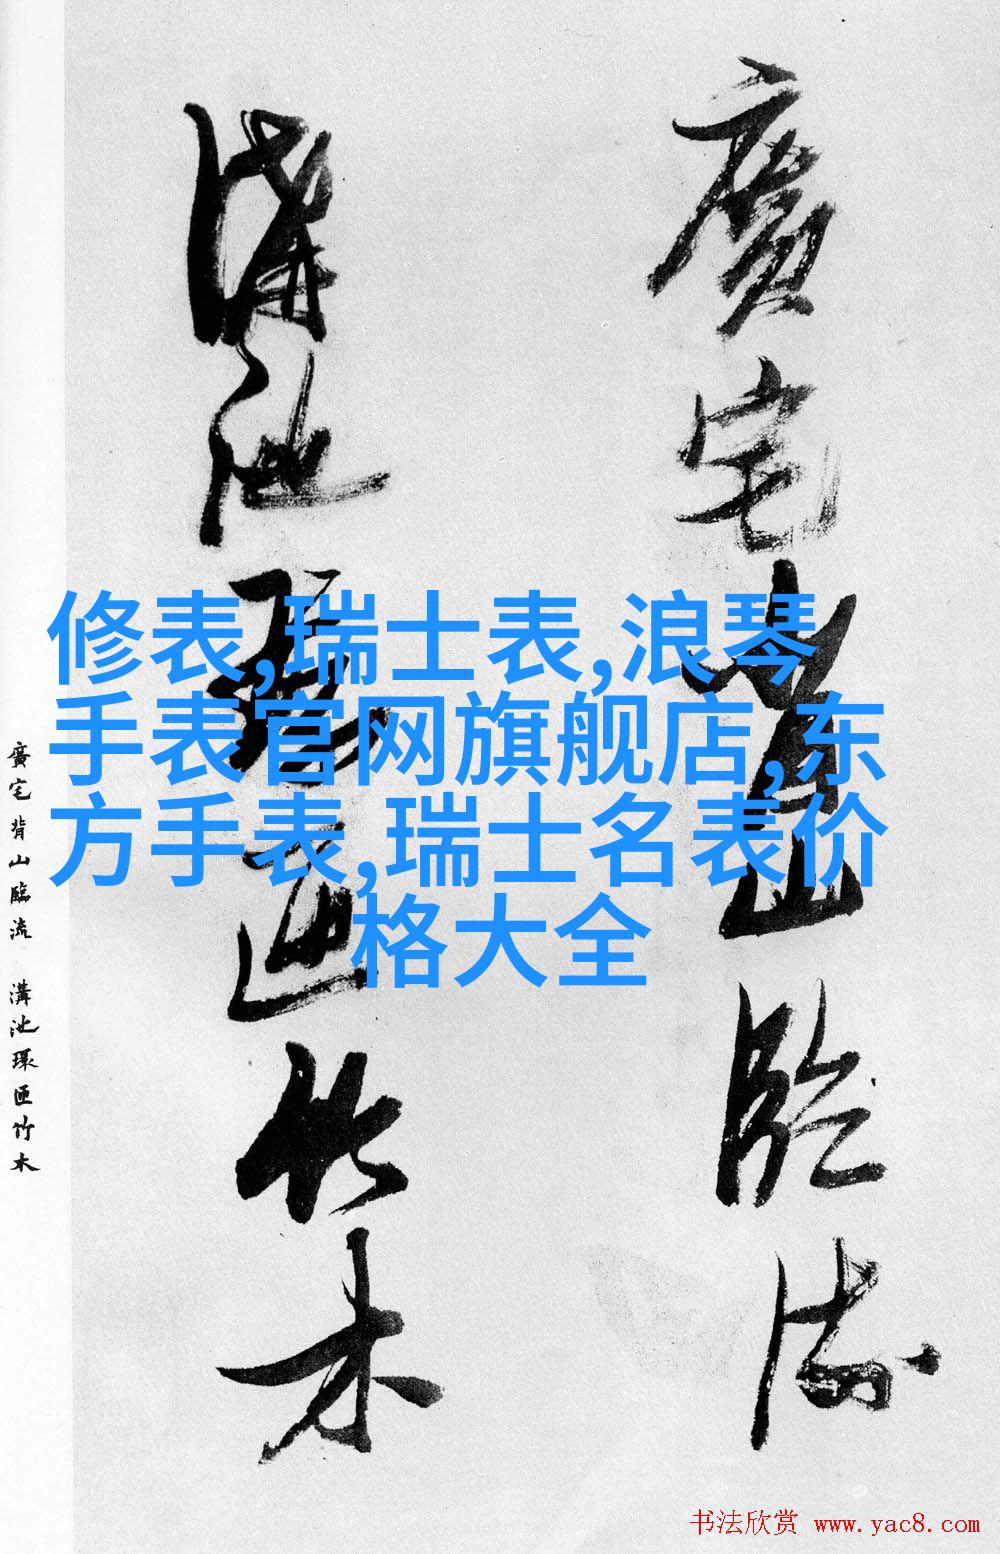 廣宅背山臨流
溝池環匝竹木
修表,瑞士表,浪琴
手表官网旗舰店,东
方手表,瑞士名表价
格大全
廣宅背山臨流 溝池環匝竹木
书法欣赏 www.yac8.com